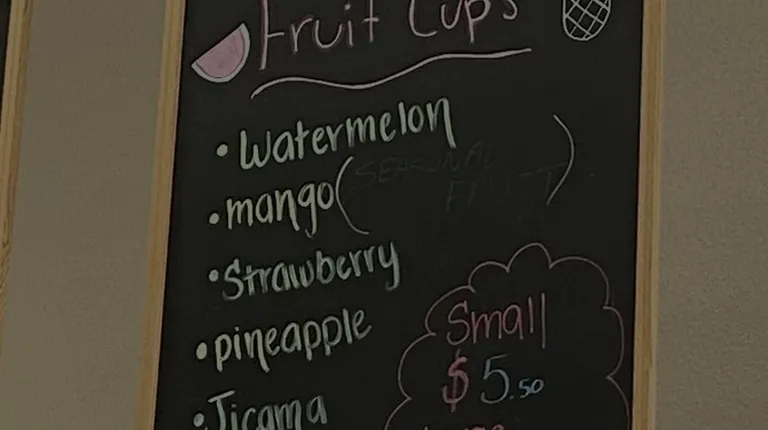 Fruit Cups
• Watermelon
• mango (SEASONAL
FRUIT)
• Strawberry
• pineapple
• Jicama
Small
$5.50